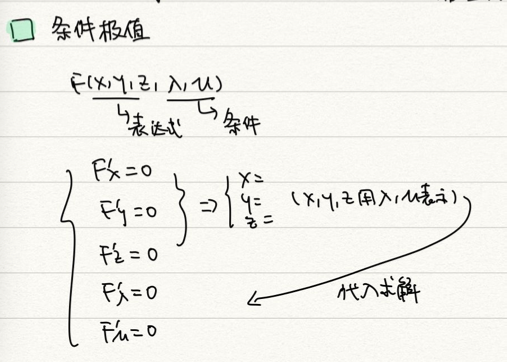 条件极值
F(x,y,z,λ,u)
表达式 条件
F'x=0
F'y=0
F'z=0
F'λ=0
F'u=0
⇒ x=
y=
z=
(x,y,z用λ,u表示)
代入求解